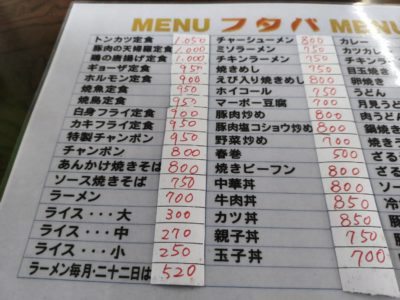 MENU フタバ MENU
トンカツ定食 1,050
豚肉の天婦羅定食 1,000
鶏の唐揚げ定食 1,000
ギョーザ定食 950
ホルモン定食 900
焼魚定食 950
焼鳥定食 950
白身フライ定食 950
カキフライ定食 950
特製チャンポン 950
チャンポン 800
あんかけ焼きそば 800
ソース焼きそば 750
ラーメン 700
ライス・・・大 300
ライス・・・中 270
ライス・・・小 250
ラーメン毎月・二十二日は 520
チャーシューメン 800
ミソラーメン 750
チキンラーメン 750
焼きめし 750
えび入り焼きめし 800
ホイコール 750
マーボー豆腐 700
豚肉炒め 800
豚肉塩コショウ炒め 800
野菜炒め 700
春巻 500
焼きビーフン 800
中華丼 800
牛肉丼 850
カツ丼 850
親子丼 750
玉子丼 700
カレー
カツカレ
目玉焼
卵焼き
うどん
月見うど
肉うどん
鍋焼き
焼き
ざる
ざる
冷
豚
豚